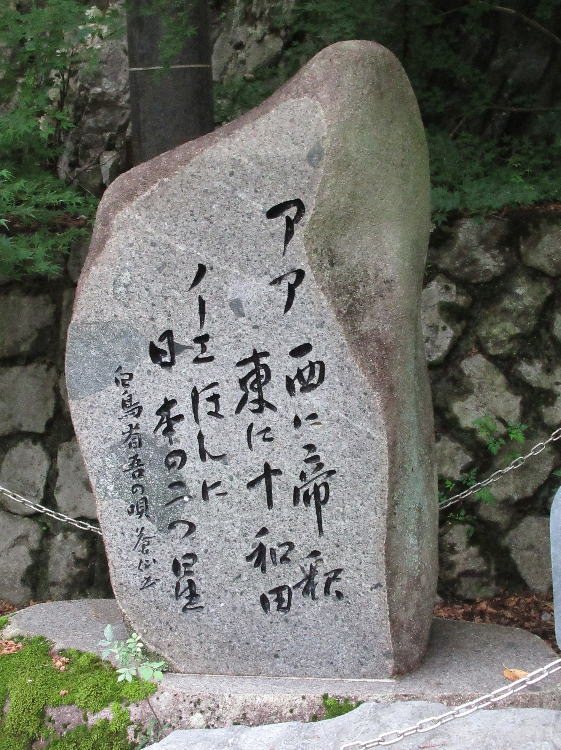 アア
西に帝釈
東に十和田
ノーエほんに
日本の二つ星
白鳥省吾の唄